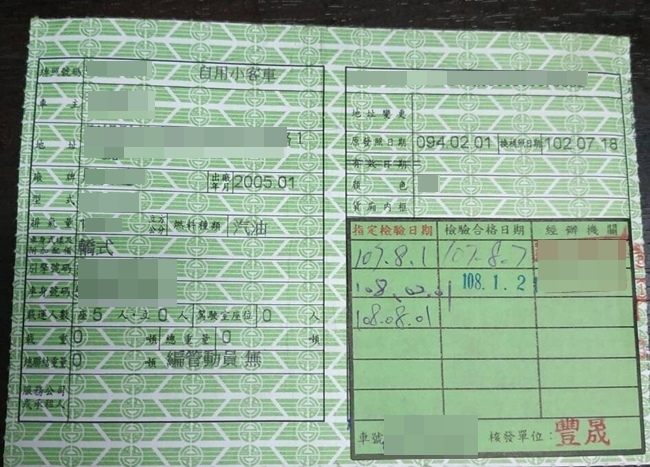 牌照號碼 自用小客車
車主
地址
廠牌 出廠年月 2005.01
型式
排氣量 立方公分 燃料種類 汽油
車身式樣及附加配備 轎式
引擎號碼
車身號碼
載運人數 座 5 人，立 0 人 駕駛室座位 0 人
載重 0 噸 總重量 0 噸
總聯結重量 0 編管動員 無
服務公司或承租人
地址變更
原發照日期 094.02.01 換補照日期 102.07.18
有效日期
顏色
貨廂內框
指定檢驗日期 檢驗合格日期 經辦機關
107.8.1 107.8.7
108.02.01 108.1.2
108.08.01
車號 核發單位：豐晟